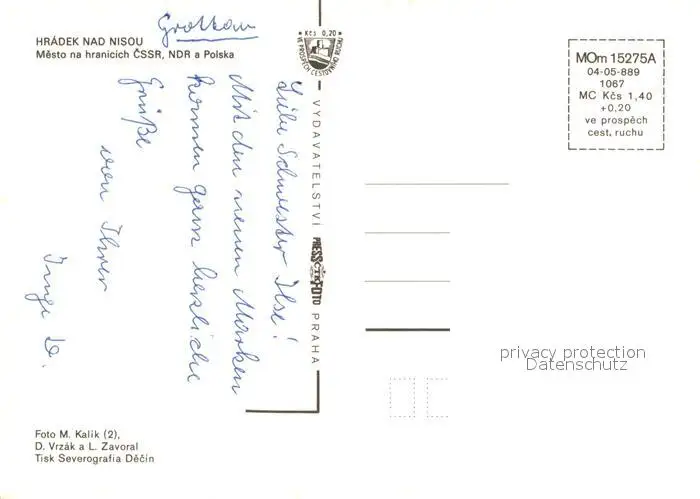 Grottau
HRÁDEK NAD NISOU
Město na hranicích ČSSR, NDR a Polska
Liebe Schwester Ilse!
Mit den neuen Marken
kommen ganz herzliche
Grüße
von Ihrer
Inge D.
Foto M. Kalik (2),
D. Vrzák a L. Zavoral
Tisk Severografia Děčín
Kčs 0,20
VE PROSPĚCH CESTOVNÍHO RUCHU
VYDAVATELSTVÍ PRESSFOTO PRAHA
ČTK
MOm 15275A
04-05-889
1067
MC Kčs 1,40
+0,20
ve prospěch
cest. ruchu
privacy protection
Datenschutz